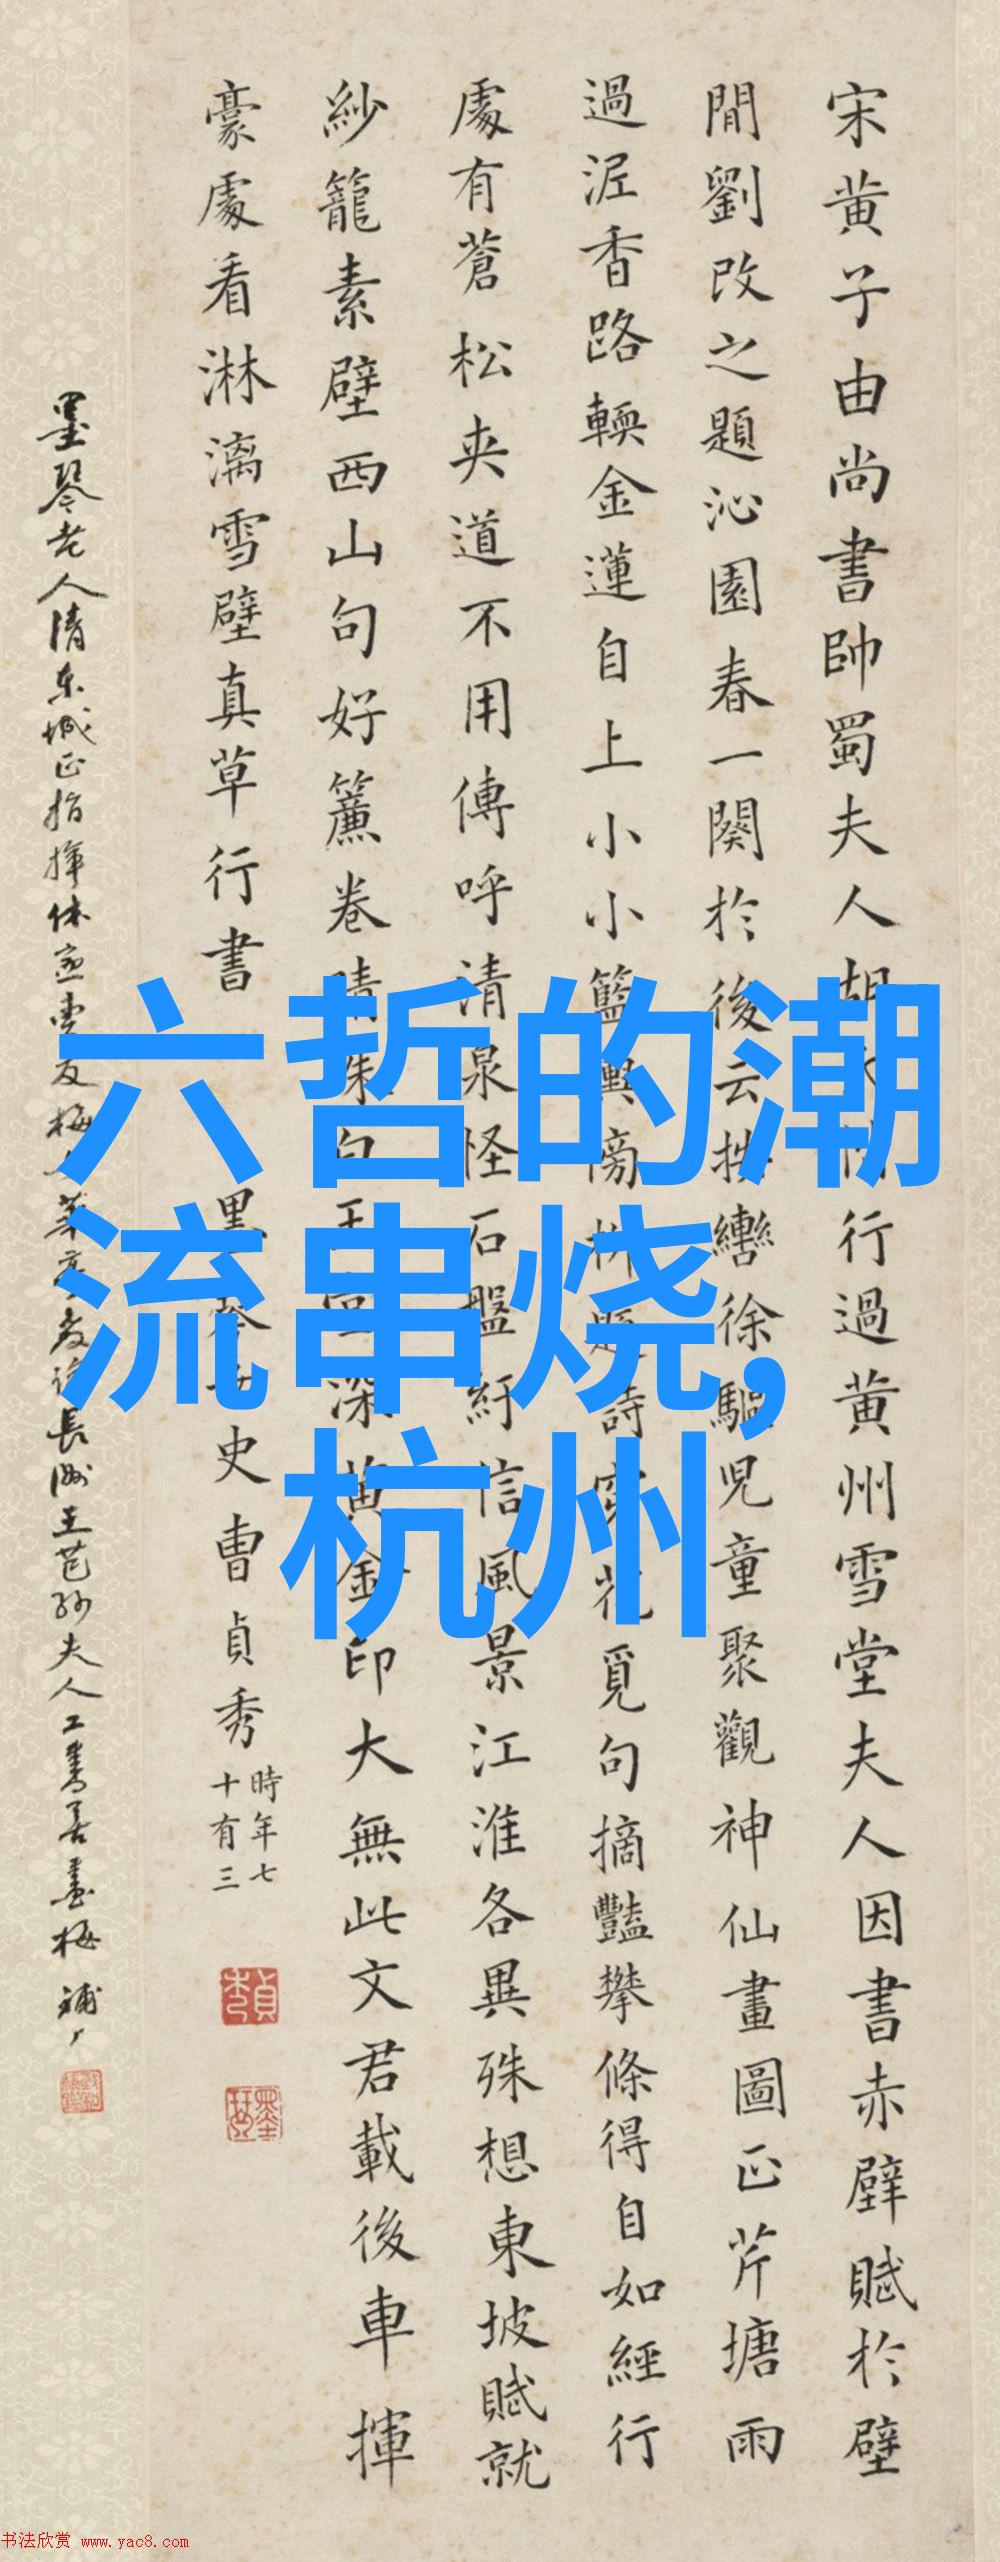 宋黄子由尚書帥蜀夫人胡
行過黄州雪堂夫人因書赤壁賦於壁
間劉改之題沁園春一闋於後云按轡徐驅児童聚觀神仙畫圖正芹塘雨
過泥香路輭金蓮自上小小籃輿傍柳題詩穿花覓句摘豔攀條得自如經行
處有蒼松夾道不用傳呼清泉怪石盤紆信風景江淮各異殊想東坡賦就
紗籠素壁西山句好簾卷晴珠白玉堂深黄金印大無此文君載後車揮
豪處看淋漓雪壁真草行書
墨琴女史曹貞秀
時年七
十有三
墨琴老人清東城正指揮
長洲王芑孫夫人工書善畫梅
六哲的潮
流串烧,
杭州
书法欣赏 www.yac8.com